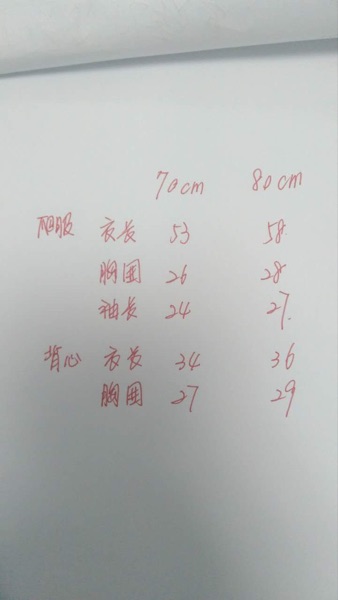 70cm 80cm
爬服 衣长 53 58
胸围 26 28
袖长 24 27.
背心 衣长 34 36
胸围 27 29